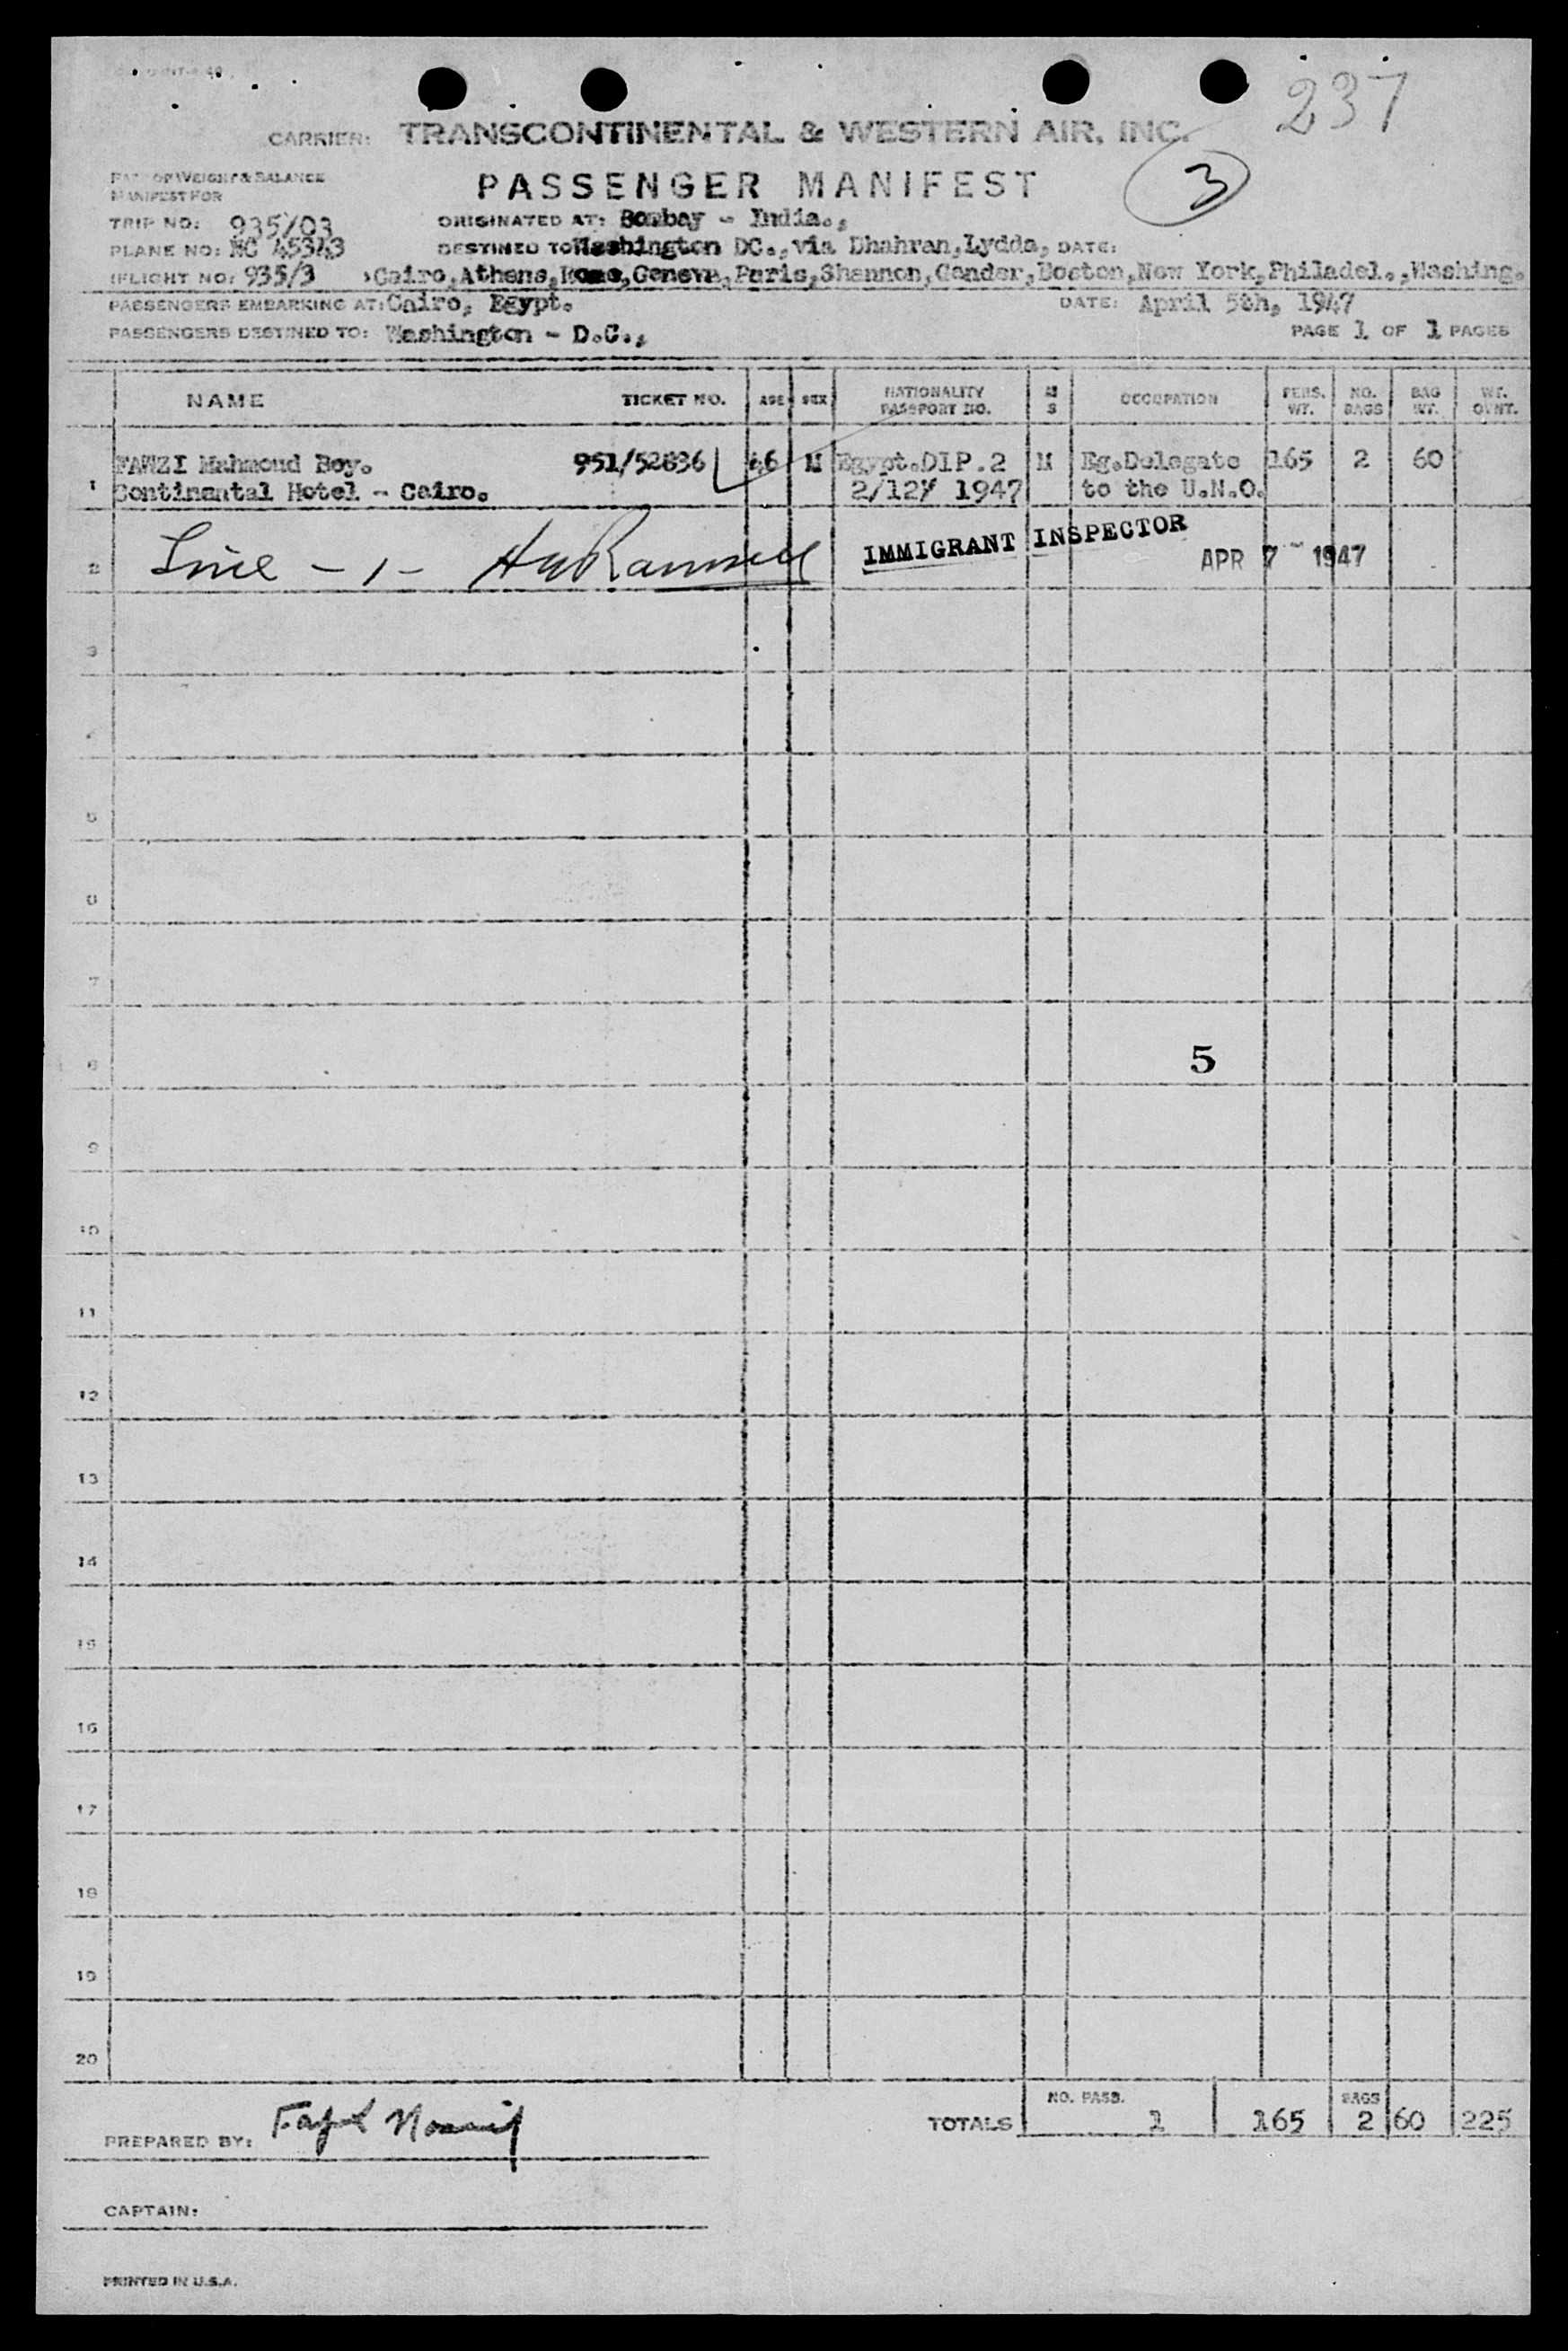 237
CARRIER: TRANSCONTINENTAL & WESTERN AIR, INC.
3
PART OF WEIGHT & BALANCE
MANIFEST FOR
PASSENGER MANIFEST
TRIP NO: 935/03 ORIGINATED AT: Bombay - India.,
PLANE NO: NC 45343 DESTINED TO Washington DC., via Dhahran,Lydda, DATE:
FLIGHT NO: 935/3 Cairo,Athens,Rome,Geneva,Paris,Shannon,Gander,Boston,New York,Philadel.,Washing.
PASSENGERS EMBARKING AT: Cairo, Egypt. DATE: April 5th, 1947
PASSENGERS DESTINED TO: Washington - D.C., PAGE 1 OF 1 PAGES
NAME TICKET NO. AGE SEX NATIONALITY PASSPORT NO. M S OCCUPATION PERS. WT. NO. BAGS BAG WT. WT. OVNT.
FAWZI Mahmoud Bey. 951/52836 46 M Egypt.DIP.2 M Eg.Delegate 165 2 60
1 Continental Hotel - Cairo. 2/127 1947 to the U.N.O.
2 Line - 1 - IMMIGRANT INSPECTOR APR 7 - 1947
3
4
5
6
7
8
5
9
10
11
12
13
14
15
16
17
18
19
20
TOTALS NO. PASS. 1 165 BAGS 2 60 225
PREPARED BY:
CAPTAIN:
PRINTED IN U.S.A.